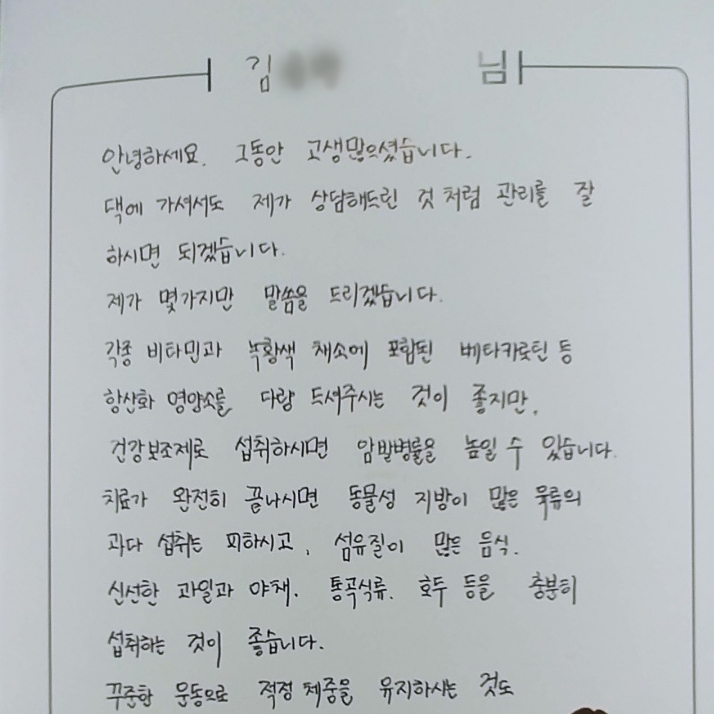 김 님
안녕하세요. 그동안 고생많으셨습니다.
댁에 가셔서도 제가 상담해드린 것 처럼 관리를 잘
하시면 되겠습니다.
제가 몇가지만 말씀을 드리겠습니다.
각종 비타민과 녹황색 채소에 포함된 베타카로틴 등
항산화 영양소를 다량 드셔주시는 것이 좋지만,
건강보조제로 섭취하시면 암발병률을 높일 수 있습니다.
치료가 완전히 끝나시면 동물성 지방이 많은 육류의
과다 섭취는 피하시고, 섬유질이 많은 음식.
신선한 과일과 야채. 통곡식류. 호두 등을 충분히
섭취하는 것이 좋습니다.
꾸준한 운동으로 적정 체중을 유지하시는 것도